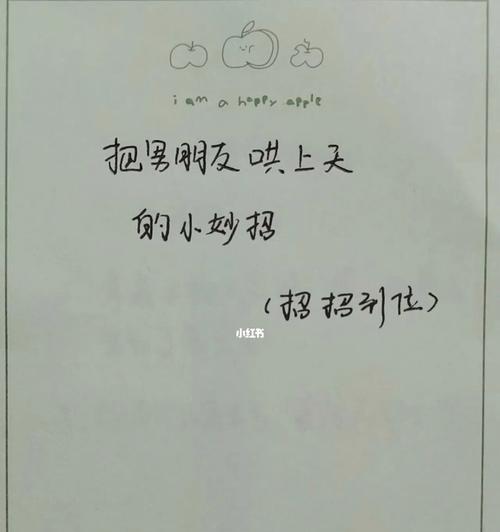 i am a happy apple
把男朋友哄上天
的小妙招
(招招到位)
小红书